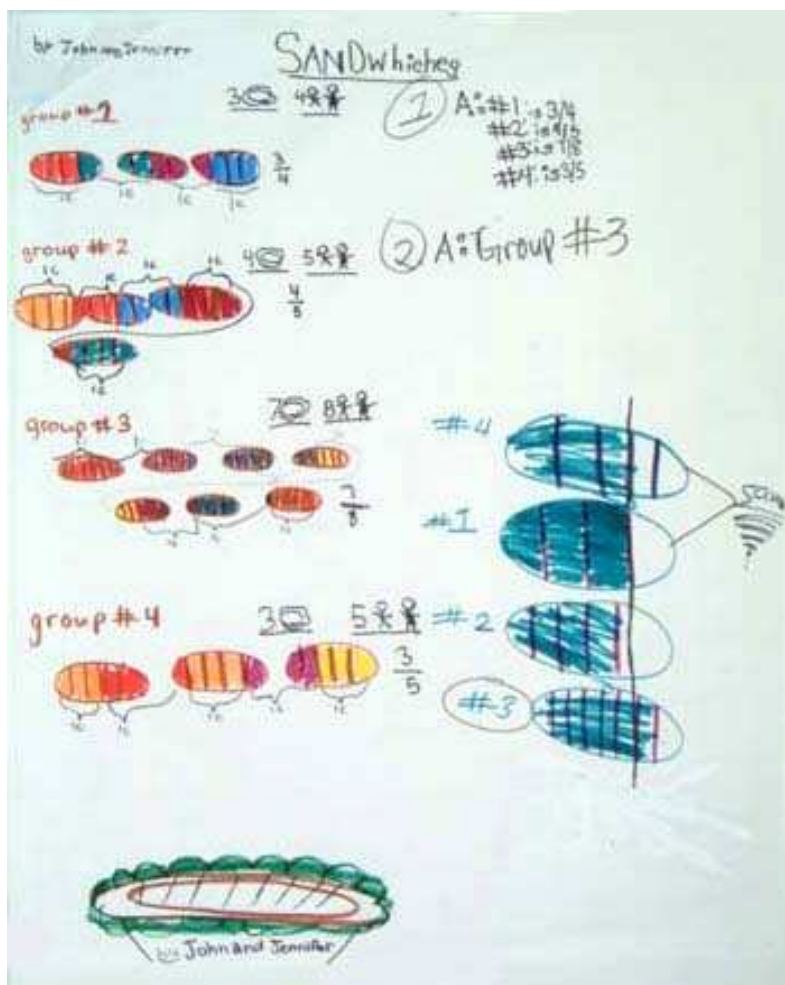 by John and Jennifer
SANDwhiches
group #1
3 4
3/4
1c 1c 1c 1c
1 A: #1 is 3/4
#2 is 4/5
#3 is 7/8
#4 is 3/5
group #2
4 5
1c 1c 1c 1c
4/5
1c
2 A: Group #3
group #3
7 8
7/8
group #4
3 5
3/5
1c 1c 1c 1c 1c
#4
#1
#2
#3
by: John and Jennifer